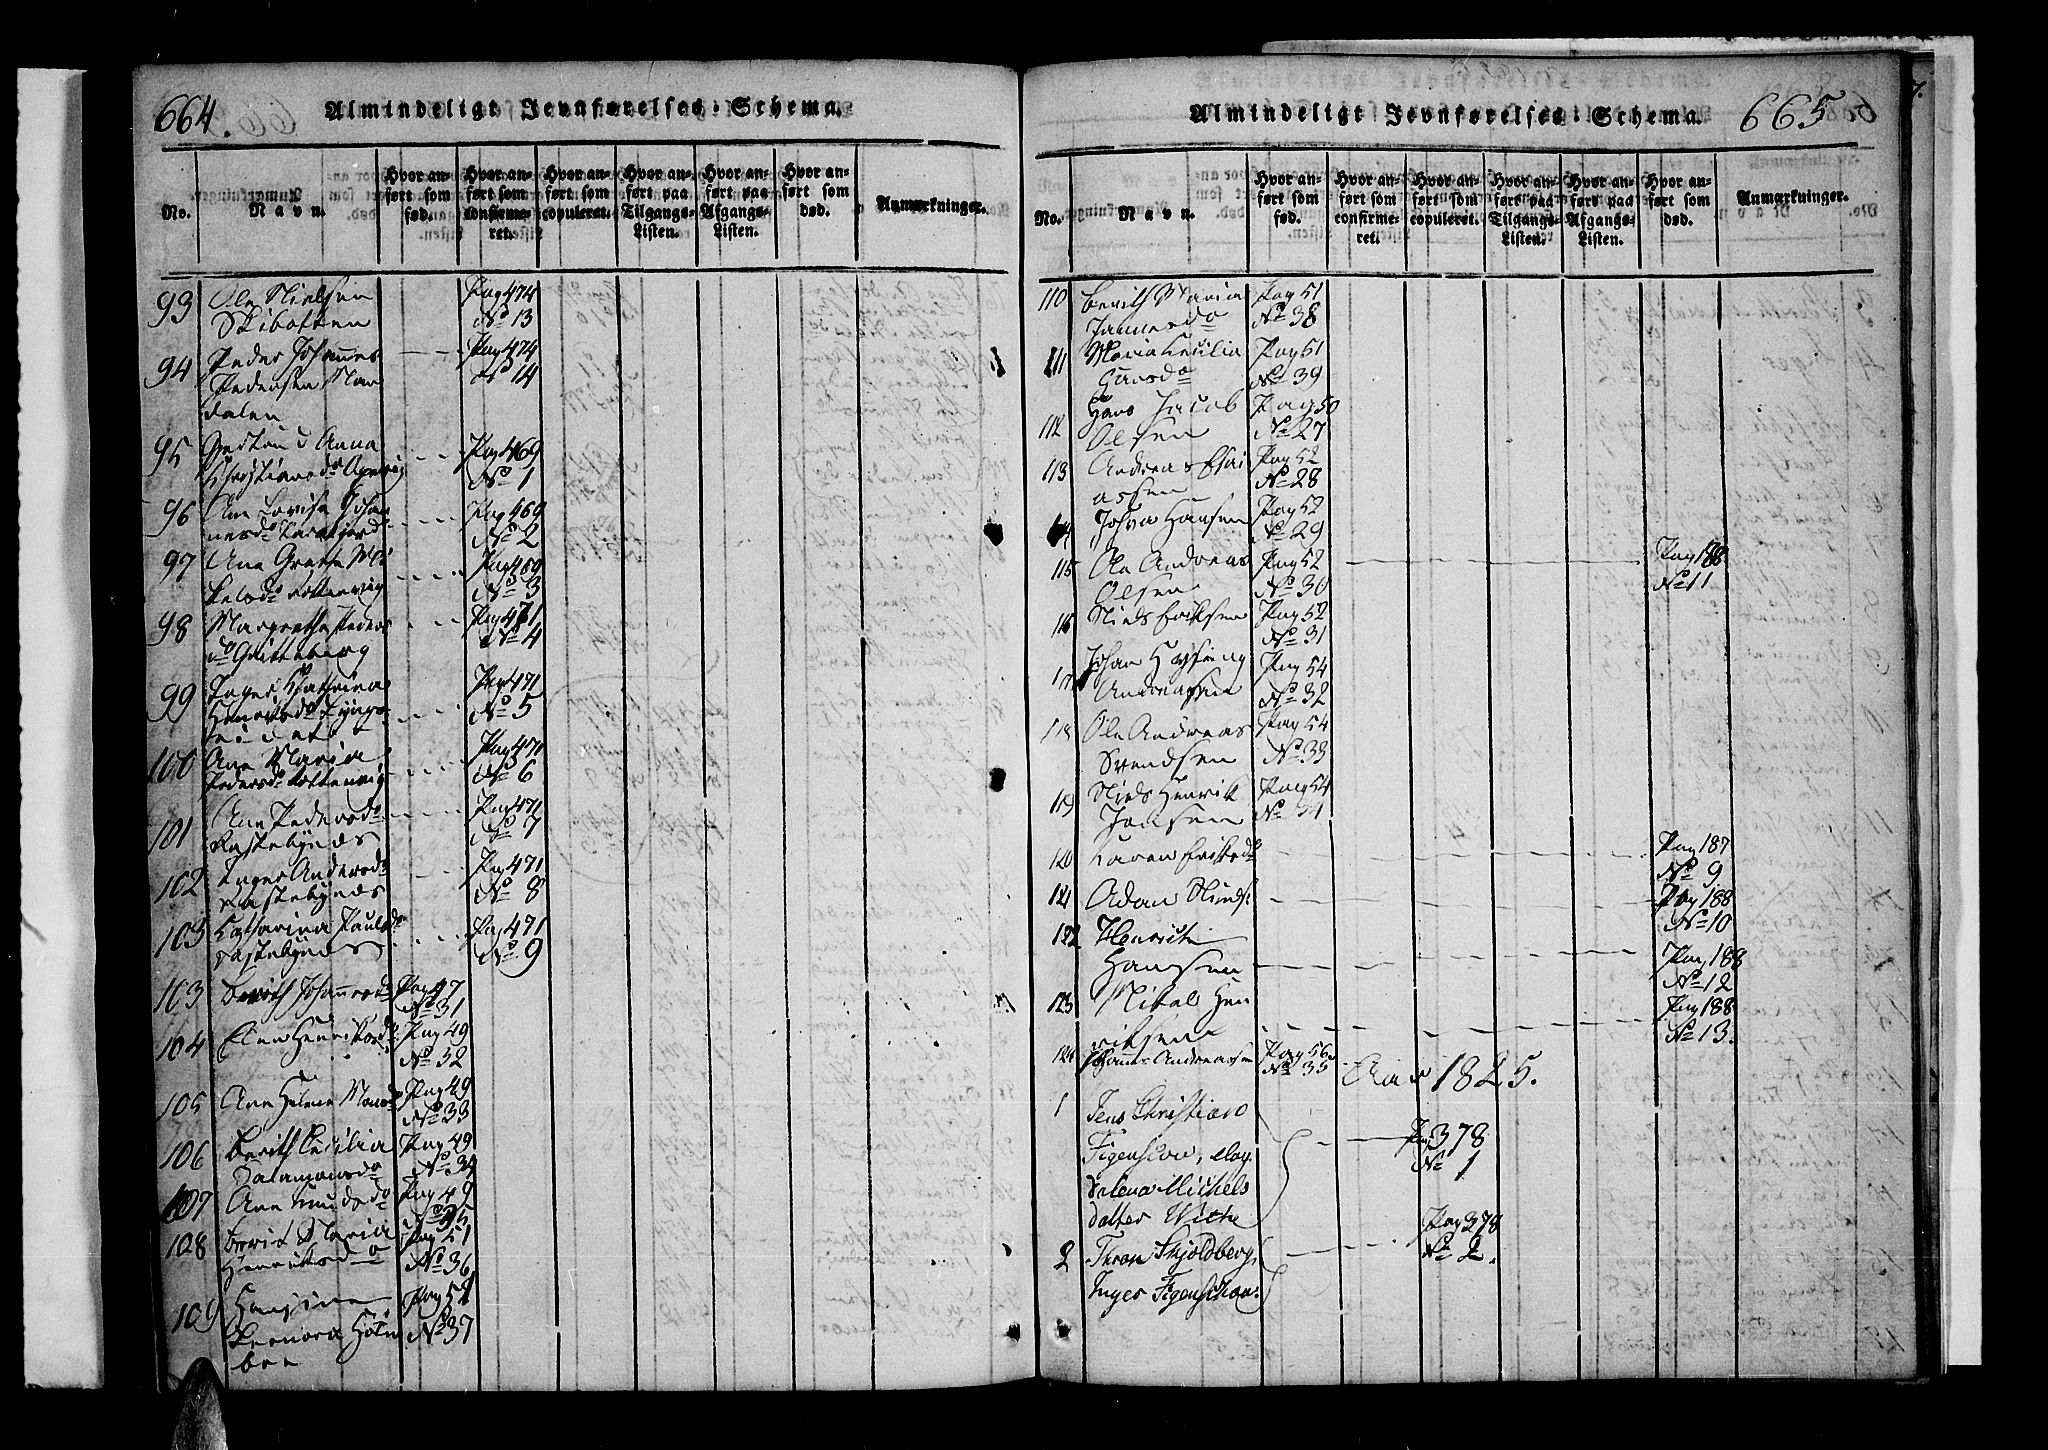 664.
Almindeligt Jevnførelses-Schema.
No.
Navn.
Hvor anført som fød.
Hvor anført som confirmeret.
Hvor anført som copuleret.
Hvor anført paa Tilgangs-Listen.
Hvor anført paa Afgangs-Listen.
Hvor anført som død.
Anmærkninger.
93 Ole Nielsen Pag 474
Skibotten No 13
94 Peder Johannes Pag 474
Pedersen Man No 14
dalen
95 Anna Pag 469
Christiansdr No 1
96 Ane Lovisa Johan Pag 469
nesdr No 2
97 Ane Grethe Mi Pag 469
kelsdr No 3
98 Margrethe Peders Pag 471
dr No 4
99 Inger Cathrina Pag 471
Henriksdr Lyngs No 5
eidet
100 Ane Maria Pag 471
Pedersdr No 6
101 Ane Pedersdr Pag 471
Rastebynds No 7
102 Inger Andersdr Pag 471
Rastebynds No 8
103 Katharina Paulsdr Pag 471
Rastebynds No 9
103 Berith Johannesdr Pag 47
No 31
104 Elen Henriksdr Pag 49
No 32
105 Ane Helene Monsdr Pag 49
No 33
106 Berith Cecilia Pag 49
Salamonsdr No 34
107 Ane Pag 49
No 35
108 Berit Maria Pag 51
Henriksdr No 36
109 Hansine Pag 51
Leonora Holm No 37
boe
665
Almindeligt Jevnførelses-Schema.
No.
Navn.
Hvor anført som fød.
Hvor anført som confirmeret.
Hvor anført som copuleret.
Hvor anført paa Tilgangs-Listen.
Hvor anført paa Afgangs-Listen.
Hvor anført som død.
Anmærkninger.
110 Berith Maria Pag 51
No 38
111 Maria Cecilia Pag 51
Hansdr No 39
112 Hans Jacob Pag 50
Olsen No 27
113 Andreas Esai Pag 52
assen No 28
114 Josva Hansen Pag 52
No 29
115 Ole Andreas Pag 52 Pag 188
Olsen No 30 No 11
116 Niels Eriksen Pag 52
No 31
117 Johan Pag 54
Andreassen No 32
118 Ole Andreas Pag 54
Svendsen No 33
119 Niels Henrik Pag 54
Jonsen No 34
120 Karen Eriksdr Pag 187
No 9
121 Adam Niels Pag 188
No 10
122 Henrich
Hansen Pag 188
No 12
123 Mikal Hen Pag 188
riksen No 13.
124 Johannes Andreassen Pag 56
No 35
Aar 1825.
1 Jens Christian
Figenschou, og Pag 378
Salena Michels No 1
datter Withe
2 Thron Skjoldberg, Pag 378
Inger Figenschou No 2.